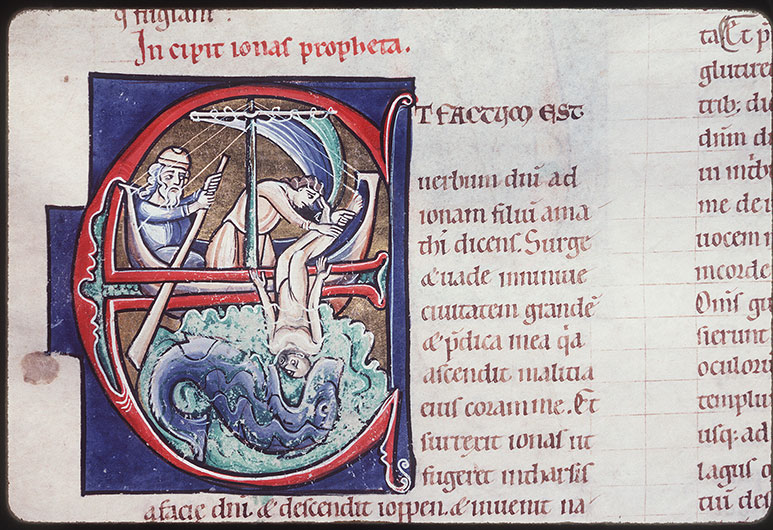 q fugiam.
Incipit ionas propheta.
ET FACTUM EST
uerbum dn̄i ad
ionam filiū ama
thi dicens. Surge
& uade in niniue
ciuitatem grandē
& p̄dica mea q̄a
ascendit malitia
eius coram me. Et
surrexit ionas ut
fugeret in tharsis
a facie dn̄i & descendit ioppen. & inuenit na
ta
glutire
trib; di
dn̄m d
me de u
uocem
in corde
Om̄s gu
sierunt
oculoru
templu
usq: ad
lagus o
tiū des